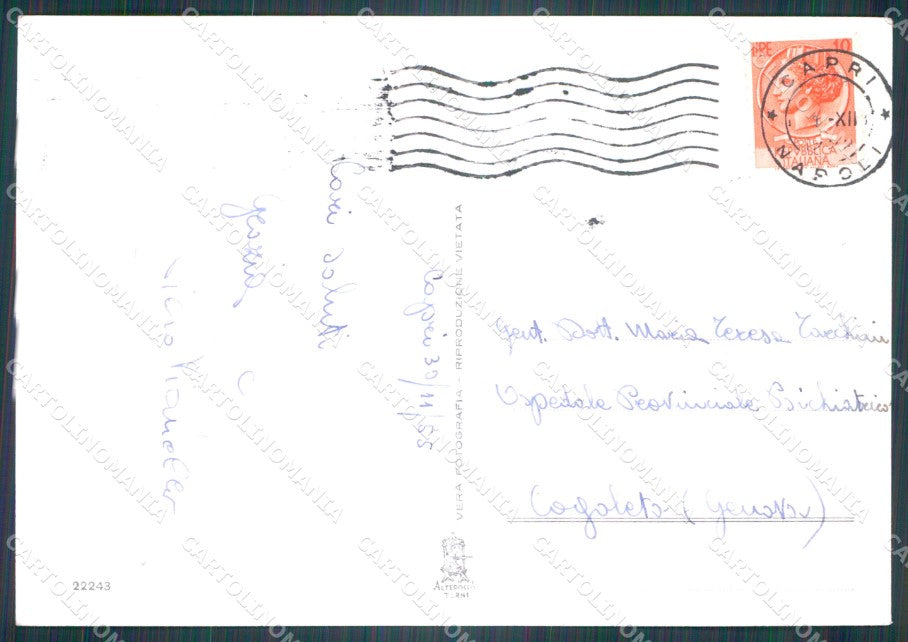 LIRE 10
REPUBBLICA
ITALIANA
CAPRI
-XII
NAPOLI
Capri 30/11/55
Cari saluti
VERA FOTOGRAFIA - RIPRODUZIONE VIETATA
Gent. Dott. Maria Teresa
Ospedale Provinciale Psichiatrico
Cogoleto (Genova)
22243
ALTEROCCA
TERNI
CARTOLINOMANIA